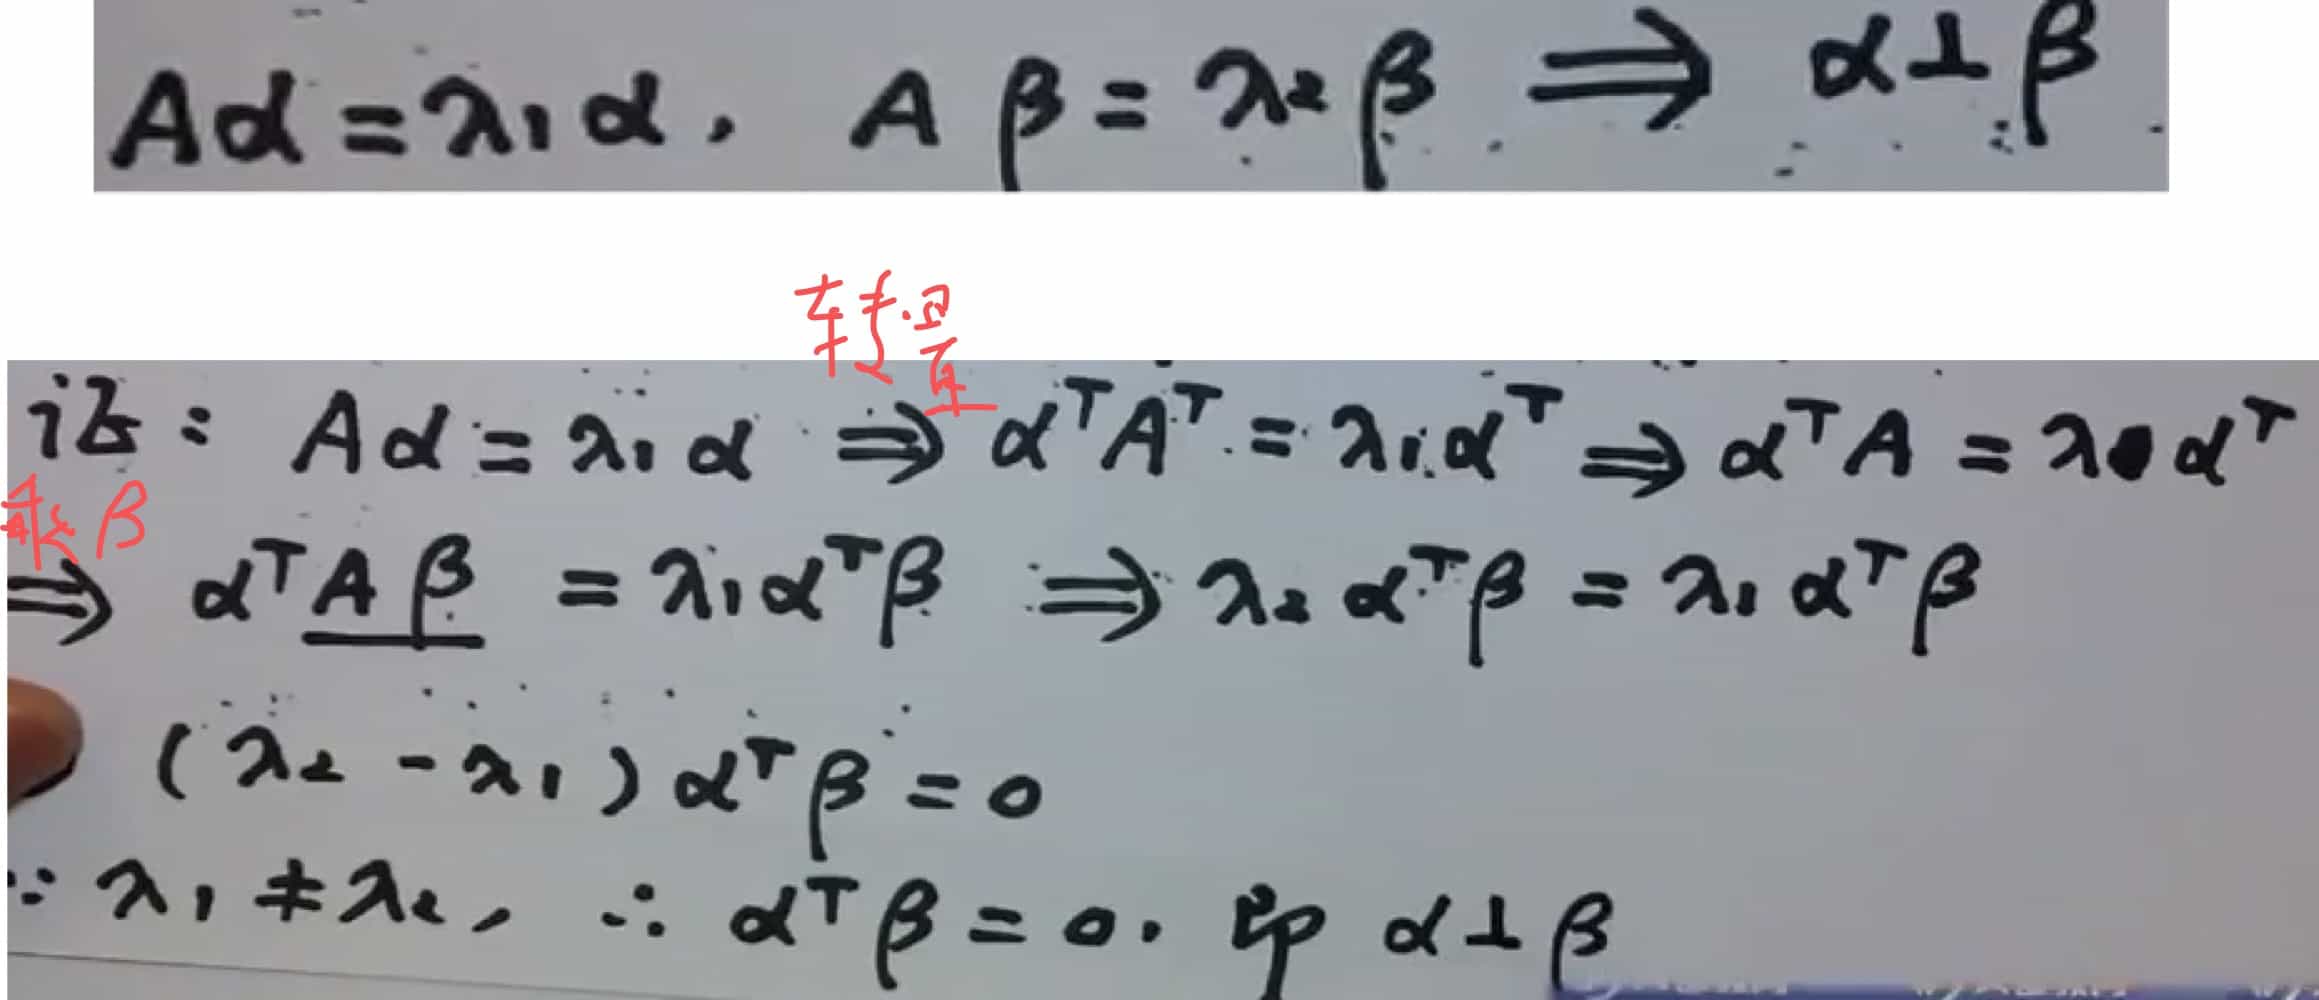 Aα = λ₁α, Aβ = λ₂β ⟹ α⊥β
转置
证: Aα = λ₁α ⟹ αᵀAᵀ = λ₁αᵀ ⟹ αᵀA = λαᵀ
乘β
⟹ αᵀAβ = λ₁αᵀβ ⟹ λ₂αᵀβ = λ₁αᵀβ
(λ₂ - λ₁)αᵀβ = 0
∵ λ₁ ≠ λ₂, ∴ αᵀβ = 0. 即 α⊥β